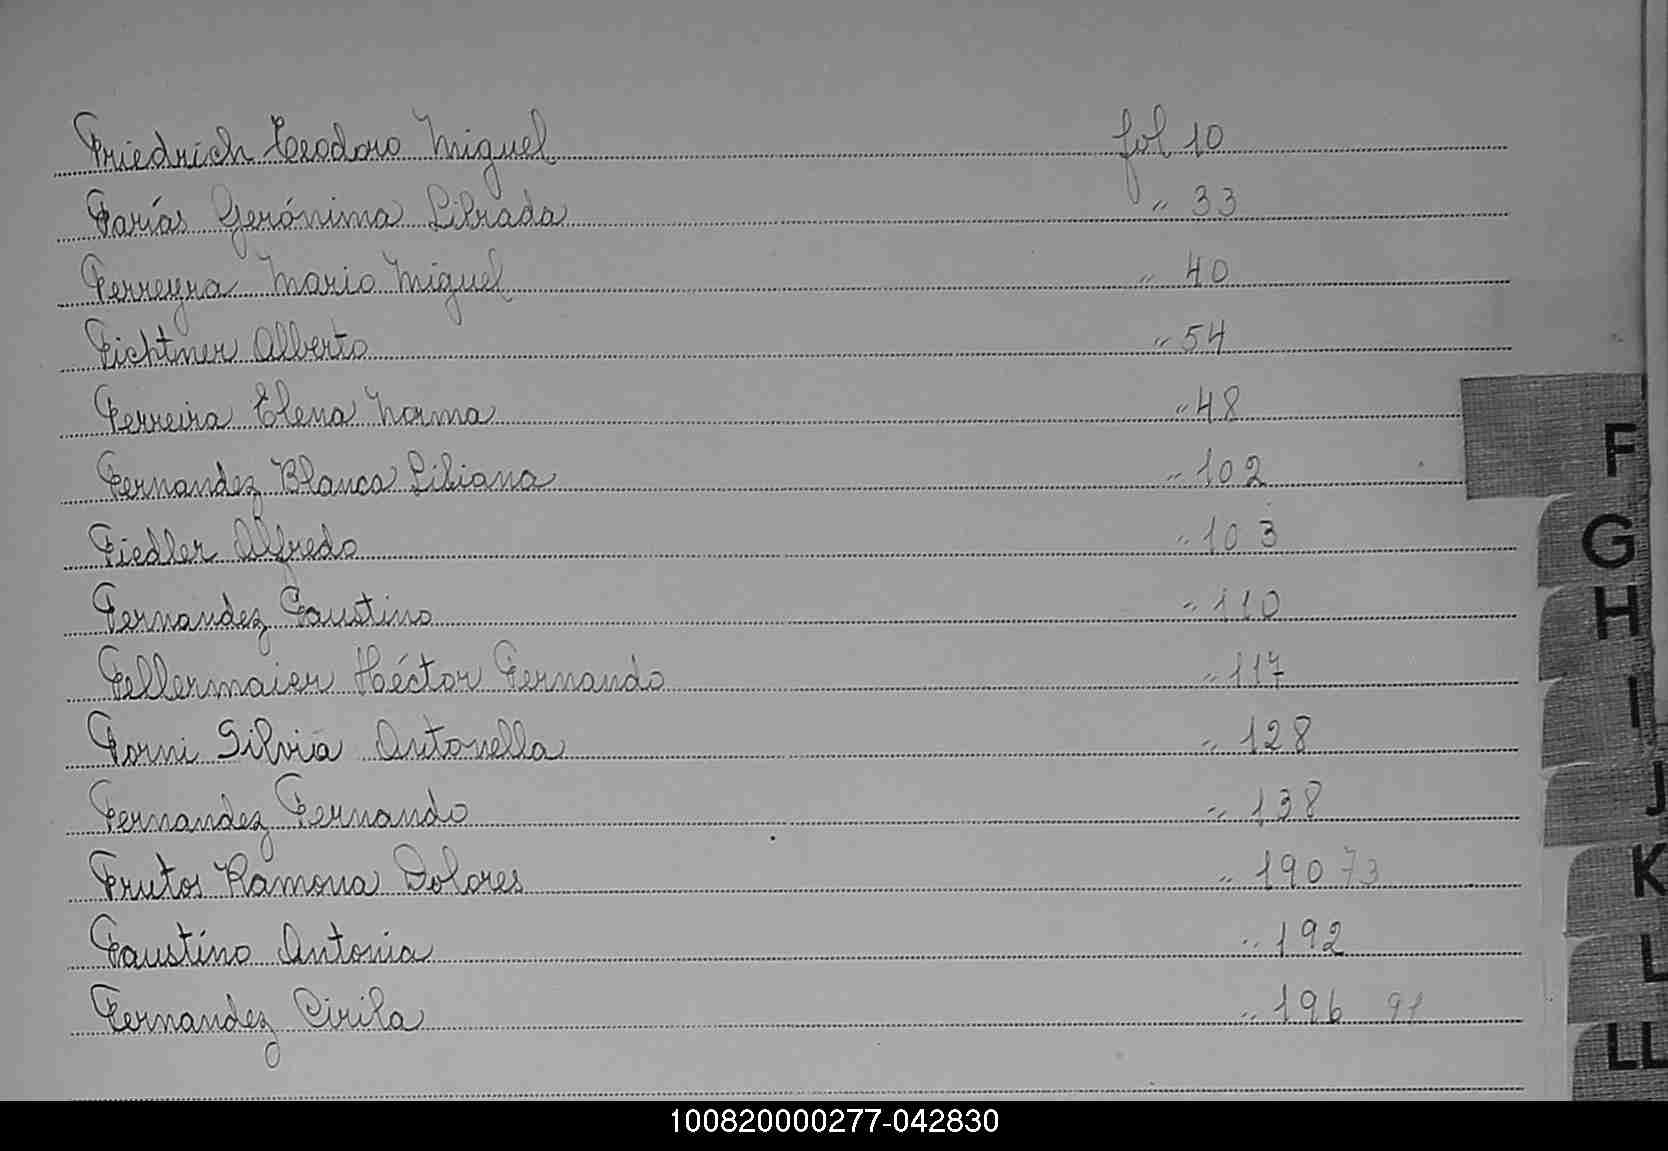 Friedrich Teodoro Miguel fol 10
Farías Gerónima Librada " 33
Ferreyra Mario Miguel " 40
Fichtner Alberto " 54
Ferreira Elena Norma " 48
Fernandez Blanca Liliana " 102
Fiedler Alfredo " 103
Fernandez Faustino " 110
Fellermaier Héctor Fernando " 117
Forni Silvia Antonella " 128
Fernandez Fernando " 138
Frutos Ramona Dolores " 190 73
Faustino Antonia " 192
Fernandez Cirila " 196 91
F
G
H
I
J
K
L
LL
100820000277-042830